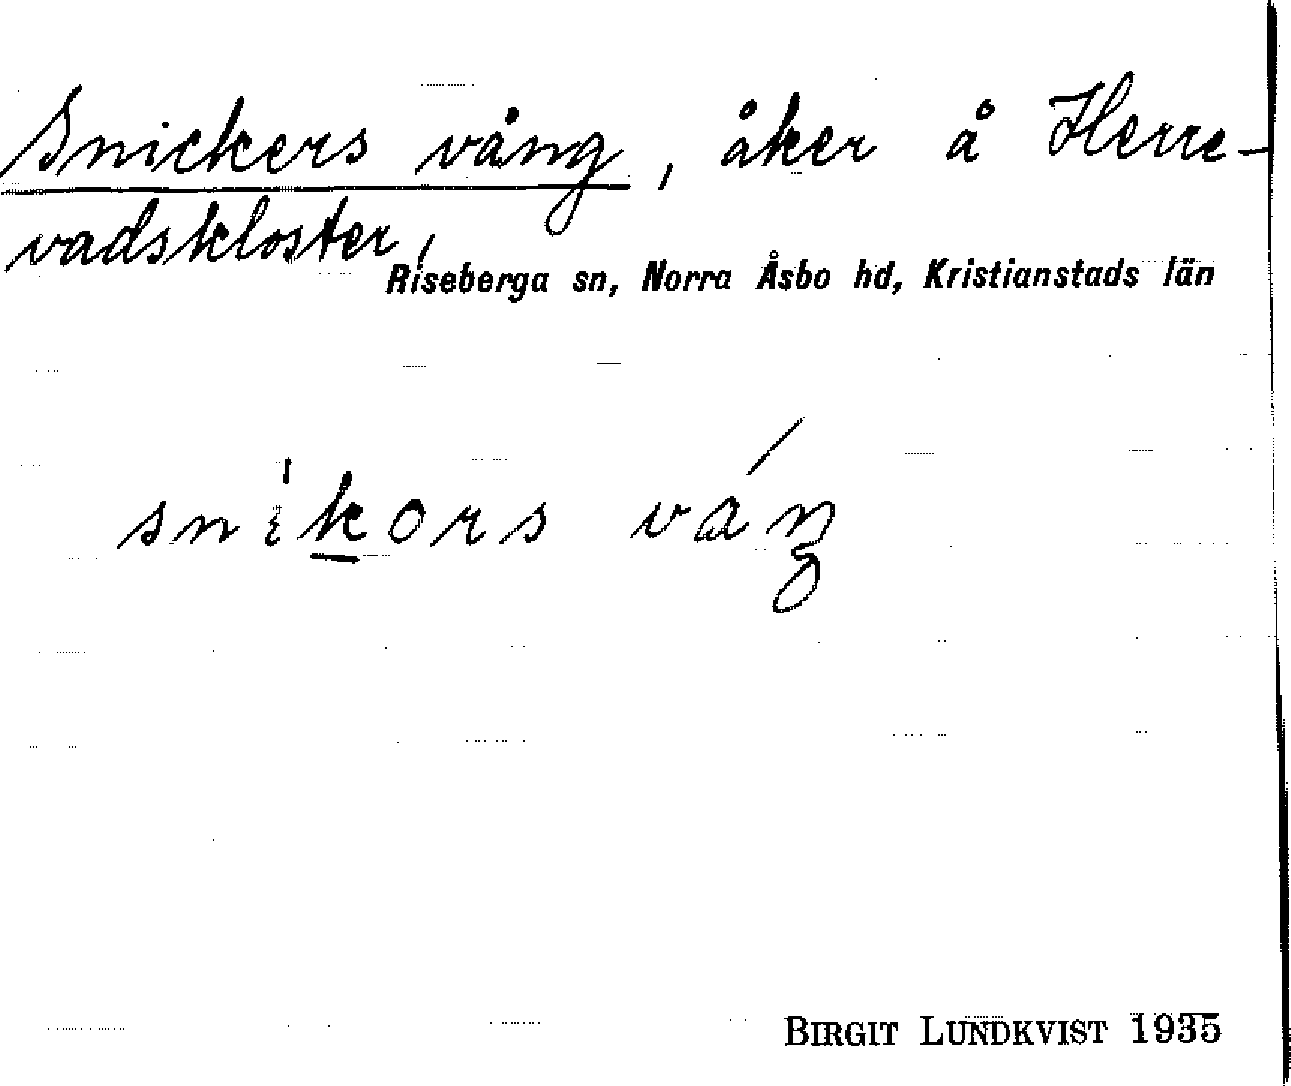 Snickers vång, åker å Herre-
vadskloster,
Riseberga sn, Norra Åsbo hd, Kristianstads län
snikors váŋ
BIRGIT LUNDKVIST 1935